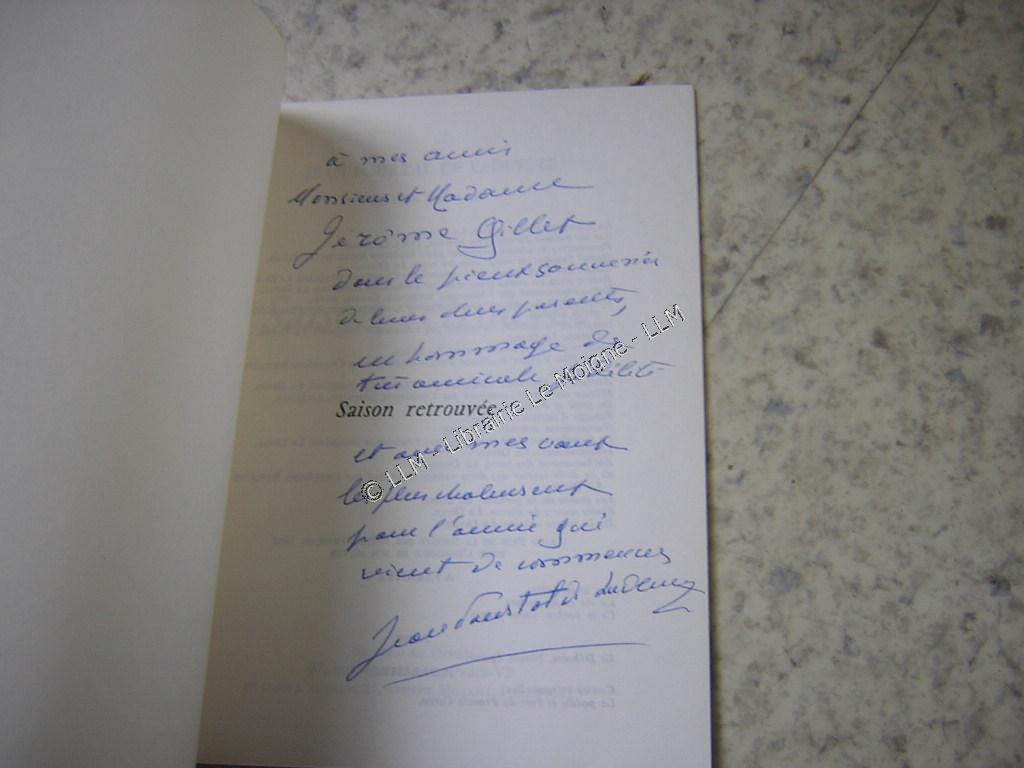 à mes amis
Monsieur et Madame
Jérôme Gillet
dans le pieux souvenir
de leurs chers parents,
en hommage de
très amicale fidélité
Saison retrouvée
et avec mes vœux
les plus chaleureux
pour l'année qui
vient de commencer
Jean
© LLM - Librairie Le Moigne - LLM